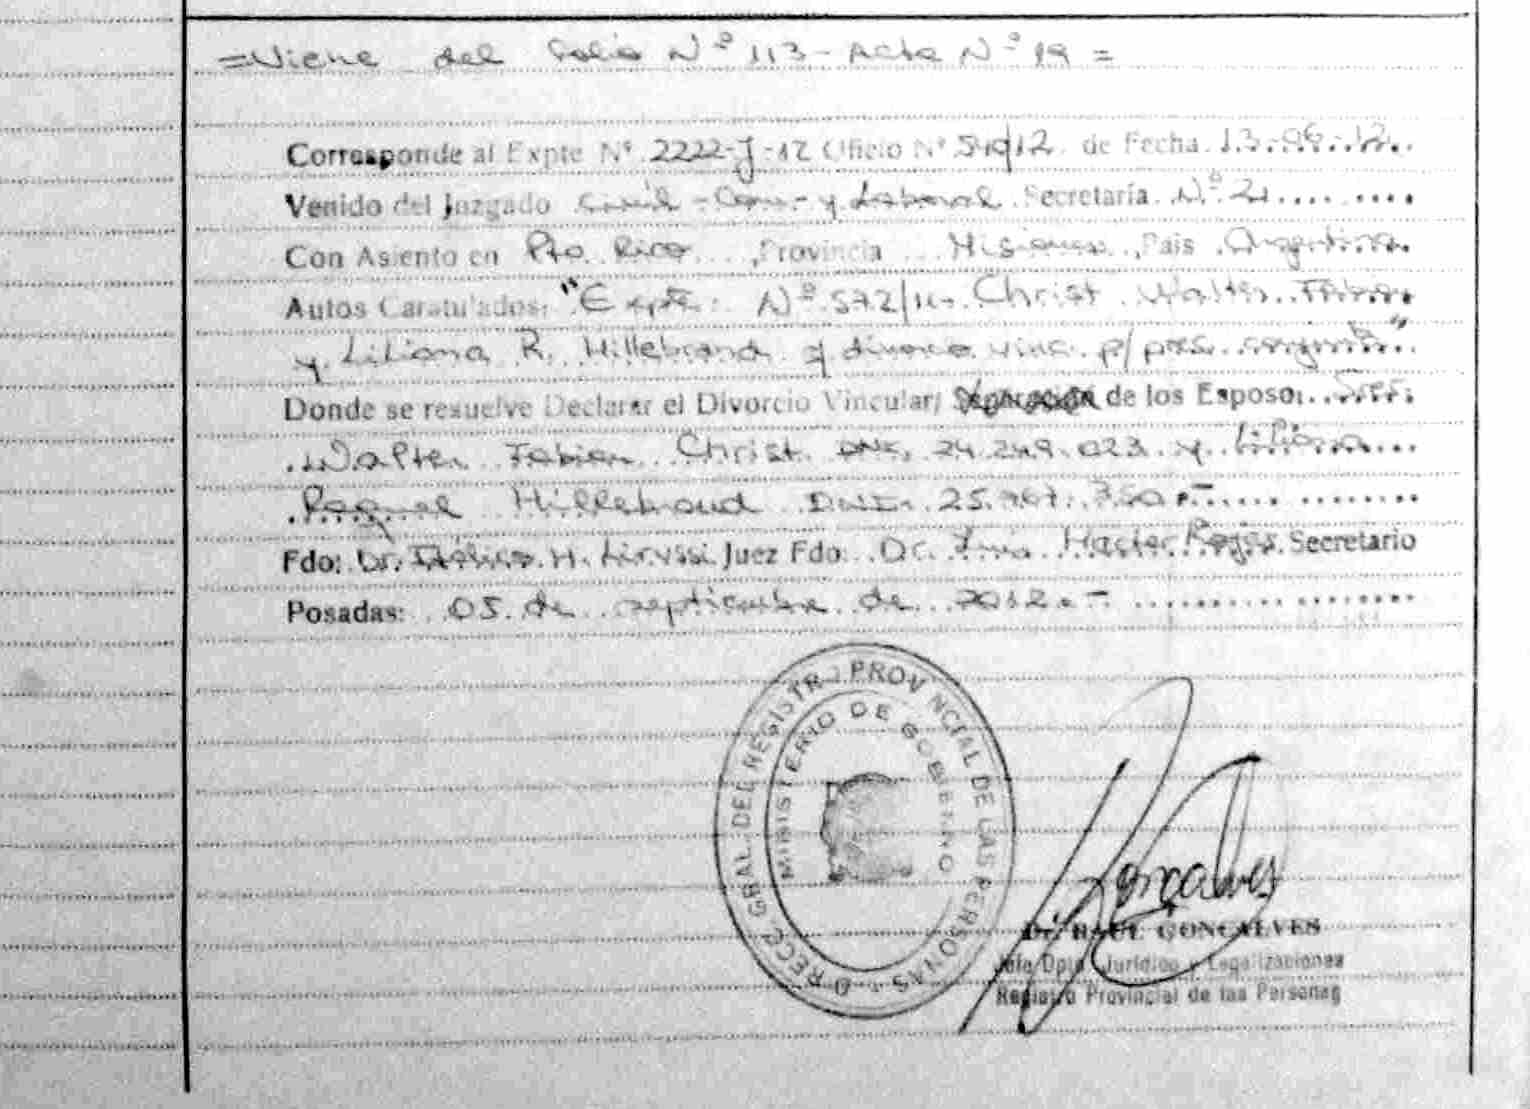 =Viene del folio Nº 113 - Acta Nº 19 =
Corresponde al Expte Nº 2222-J-12 Oficio Nº 540/12 de Fecha 13-06-12
Venido del Juzgado Civil - Com - y Laboral Secretaría Nº 2
Con Asiento en Pto Rico, Provincia Misiones, País Argentina
Autos Caratulados: "Expte. Nº 572/ Christ Walter Fabian
y Liliana R. Hillebrand s/ divorcio vinc. p/ pres. conjunta"
Donde se resuelve Declarar el Divorcio Vincular/ Separación de los Esposo: Sres.
Walter Fabian Christ DNI. 24.249.023 y Liliana
Raquel Hillebrand DNI. 25.767.750.-
Fdo: Dr. H. Juez Fdo: Dr. Rojas Secretario
Posadas: 05 de septiembre de 2012.-
DIRECC. GRAL. DEL REGISTRO PROVINCIAL DE LAS PERSONAS
MINISTERIO DE GOBIERNO
Goncalves
Dr. RAUL GONCALVES
Jefe Dpto. Jurídico y Legalizaciones
Registro Provincial de las Personas